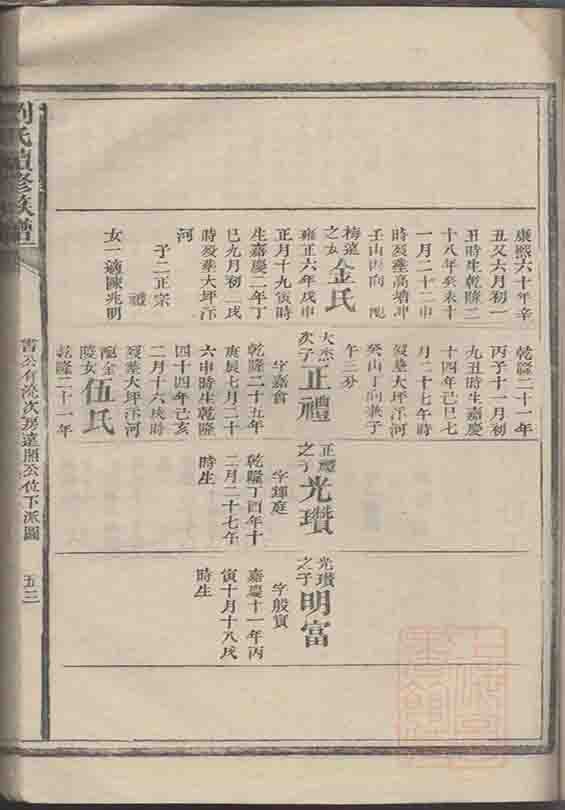 康熙六十年辛
丑又六月初一
丑時生乾隆二
十八年癸未十
一月二十二申
時歿葬高塘坤
壬山丙向 配
梅遠之女金氏
雍正六年戊申
正月十九寅時
生嘉慶二年丁
巳九月初一戌
時歿葬大坪汙
河
子二正宗
禮
女一適陳兆明
乾隆二十一年
丙子十一月初
九丑時生嘉慶
十四年己巳七
月二十七午時
歿葬大坪汙河
癸山丁向兼子
午三分
大杰次子正禮
字嘉會
乾隆二十五年
庚辰七月二十
六申時生乾隆
四十四年己亥
二月十六戌時
歿葬大坪汙河
配金陵女伍氏
乾隆二十一年
正禮之子光瓚
字輝庭
乾隆丁酉年十
二月二十七午
時生
光瓚之子明富
字殷實
嘉慶十一年丙
寅十月十八戌
時生
劉氏續修族譜
書公有流次房遠照公位下派圖 五三